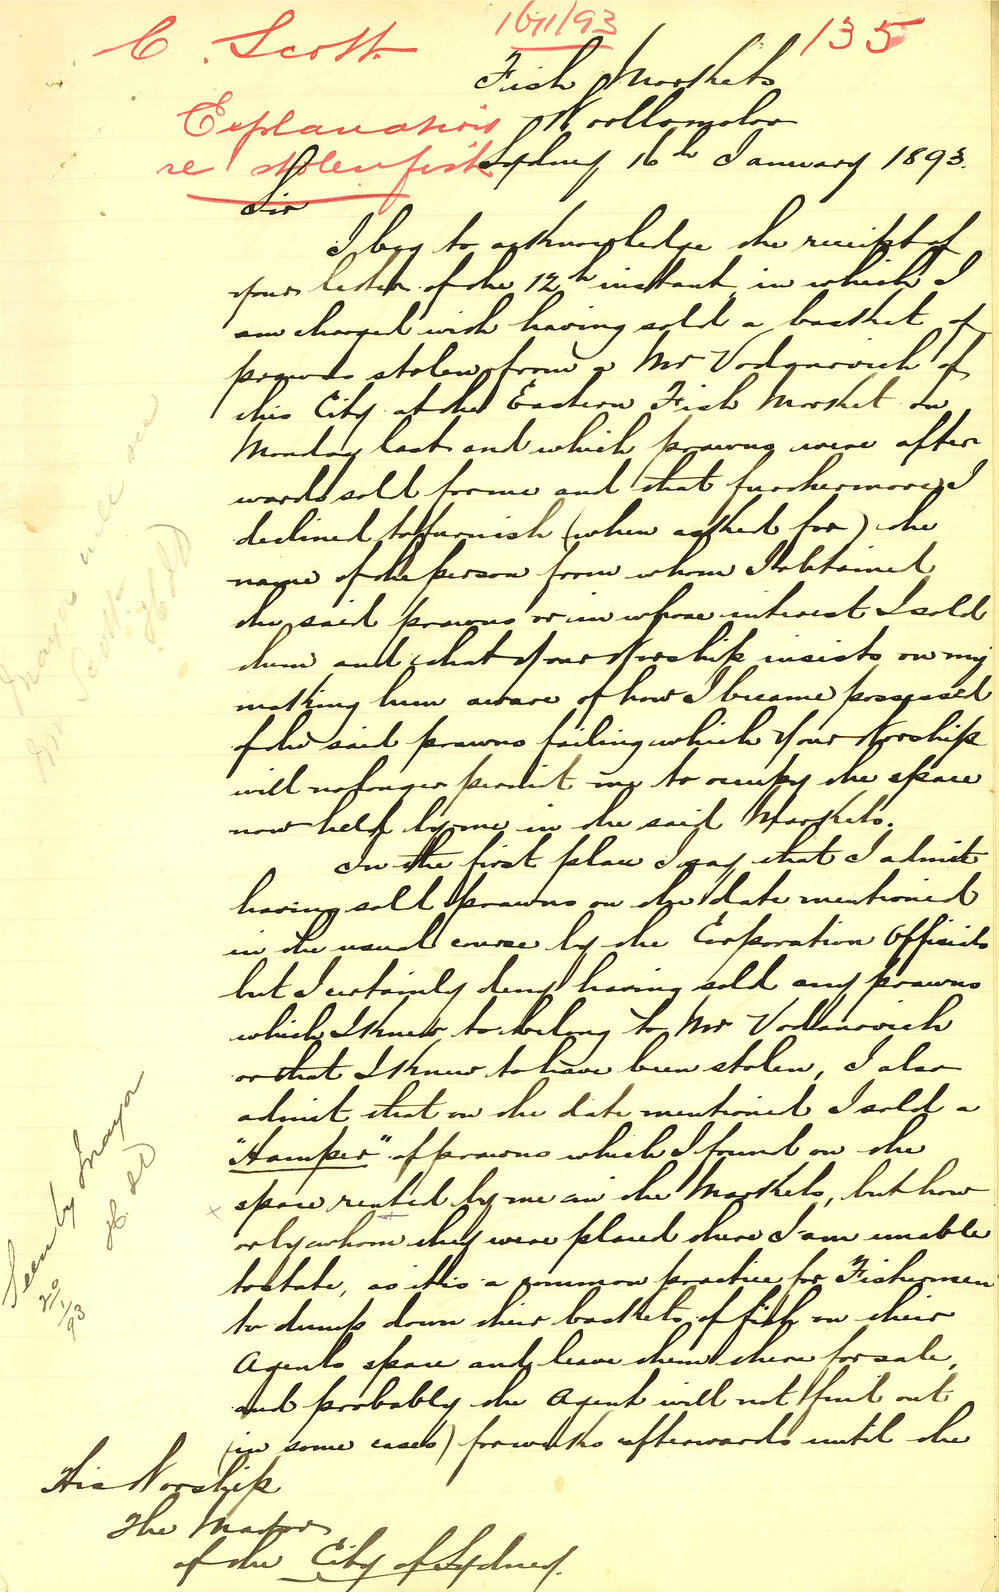 C. Scott.
16/1/93
135
Explanation
re stolen fish
Fish Markets
Woolloomooloo
Sydney 16th January 1893.
Sir
I beg to acknowledge the receipt of
your letter of the 12th instant, in which I
am charged with having sold a basket of
prawns stolen from a Mr Vodanovich of
this City at the Eastern Fish Market on
Monday last and which prawns were after
wards sold for me and that furthermore I
declined to furnish (when asked for) the
name of the person from whom I obtained
the said prawns or in whose interest I sold
them and that Your Worship insists on my
making him aware of how I became possessed
of the said prawns failing which Your Worship
will no longer permit me to occupy the space
now held by me in the said Markets.
In the first place I say that I admit
having sold prawns on the date mentioned
in the usual course by the Corporation Officials
but I certainly deny having sold any prawns
which I knew to belong to Mr Vodanovich
or that I knew to have been stolen, I also
admit that on the date mentioned I sold a
"Hamper" of prawns which I found on the
x space rented by me in the Markets, but how
or by whom they were placed there I am unable
to state, as it is a common practice for Fishermen
to dump down their baskets of fish on their
Agents space and leave them there for sale,
and probably the Agent will not find out
(in some cases) for weeks afterwards until the
His Worship
The Mayor
of the City of Sydney.
Mayor
Scott
Seen by Mayor
20/1/93